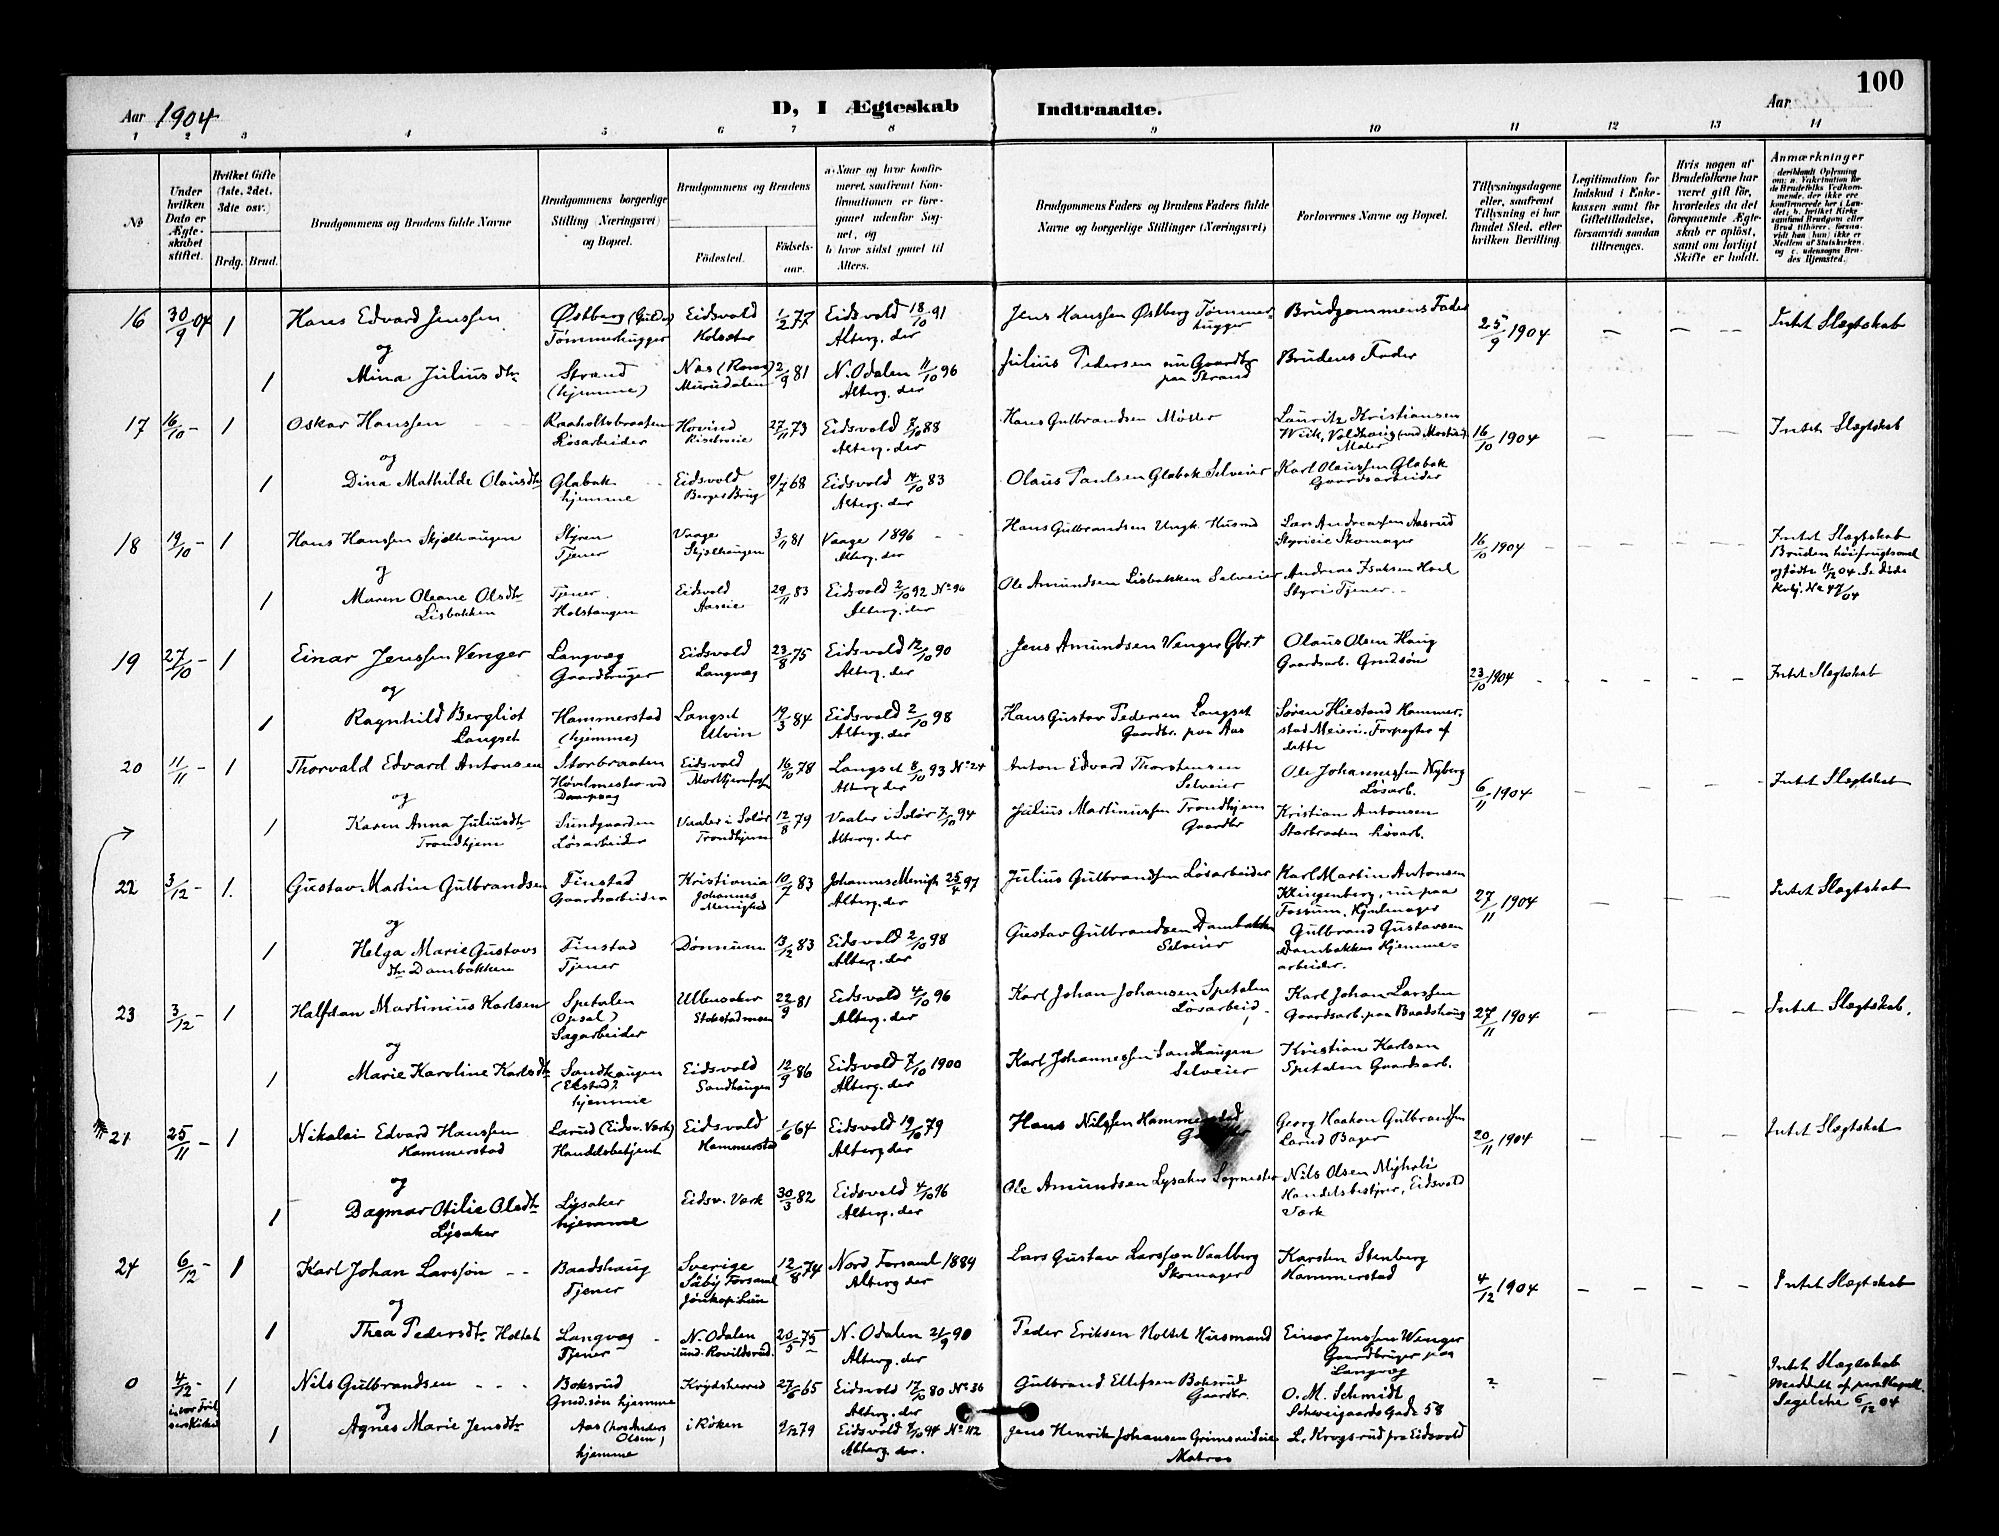 Aar 1904
D, I Ægteskab Indtraadte.
Aar 100
1 2 3 4 5 6 7 8 9 10 11 12 13 14
№
Under hvilken Dato er Ægteskabet stiftet.
Hvilket Gifte (1ste, 2det, 3die osv.)
Brdg. Brud.
Brudgommens og Brudens fulde Navne
Brudgommens borgerlige Stilling (Næringsvei) og Bopæl.
Brudgommens og Brudens
Fødested. Fødselsaar.
a. Naar og hvor konfirmeret, saafremt Konfirmationen er foregaaet udenfor Sognet, og
b. hvor sidst gaaet til Alters.
Brudgommens Faders og Brudens Faders fulde Navne og borgerlige Stillinger (Næringsvei)
Forlovernes Navne og Bopæl.
Tillysningsdagene eller, saafremt Tillysning ei har fundet Sted, efter hvilken Bevilling.
Legitimation for Indskud i Enkekassen samt for Giftetilladelse, forsaavidt saadan tiltrænges.
Hvis nogen af Brudefolkene har været gift før, hvorledes da det foregaaende Ægteskab er opløst, samt om lovligt Skifte er holdt.
Anmærkninger
16 30/9 04 1 Hans Edvard Jenssen Østberg Tømmerhugger Eidsvold 1/2 77 Eidsvold 18/10 91 Alterg. der Jens Hanssen Østberg Tømmerhugger Brudgommens Fader 25/9 1904 — — — — Intet Slægtskab
og
1 Mina Juliusdtr Strand (hjemme) Næs 2/9 81 N. Odalen 11/10 96 Alterg. der Julius Pedersen nu Gaardbr paa Strand Brudens Fader
17 16/10 — 1 Oskar Hanssen Raaholtsbraaten Løsarbeider Hovind 27/11 73 Eidsvold 7/10 88 Alterg. der Hans Gulbrandsen Møller Lauritz Kristiansen 16/10 1904 — — — Intet Slægtskab
og
1 Dina Mathilde Olausdtr Glabak hjemme Eidsvold 9/7 68 Eidsvold 14/10 83 Alterg. der Olaus Paulsen Glabak Selveier Karl Olaussen Glabak Gaardsarbeider
18 19/10 — 1 Hans Hanssen Skjelhaugen Styren Tjener Vaage Skjelhaugen 3/11 81 Vaage 1896 Alterg. der Hans Gulbrandsen Ungk. Husmd Lars Andreassen Aasrud Styrieie Skomager 16/10 1904 — — — — Intet Slægtskab
Bruden høifrugtsomel
og
1 Maren Oleane Olsdtr Lisbakken Tjener Holstangen Eidsvold Aaseie 29/11 83 Eidsvold 2/10 92 № 96 Alterg. der Ole Amundsen Lisbakken Selveier Andreas Isaksen Styri Tjener
19 27/10 — 1 Einar Jenssen Venger Langvæg Gaardbruger Eidsvold Langvæg 23/8 75 Eidsvold 12/10 90 Alterg. der Jens Amundsen Venger Gbr. † Olaus Olsen Haug Gaardsarb. Grudsøn 23/10 1904 - - - - - Intet Slægtskab
og
1 Ragnhild Bergliot Langset Hammerstad (hjemme) Langset Ulvin 19/3 84 Eidsvold 2/10 98 Alterg. der Hans Gustav Pedersen Langset Gaardbr. paa Aas Søren Hiestand Hammerstad Meieri. Forpagter af dette
20 11/11 — 1 Thorvald Edvard Antonsen Storbraaten Høvelmester ved Dampsag Eidsvold 16/10 78 Langset 8/10 93 № 24 Alterg. der Anton Edvard Thorstensen Selveier Ole Johannessen Nyberg Løsarb. 6/11 1904 — — — — Intet Slægtskab
og
1 Karen Anna Juliusdtr Trondhjem Sundgaarden Løsarbeider Vaaler i Solør Trondhjem 12/8 79 Vaaler i Solør 7/10 94 Alterg. der Julius Martinussen Trondhjem Gaardbr Kristian Antonsen Storbraaten Løsarb.
22 3/12 — 1. Gustav Martin Gulbrandsen Finstad Gaardsarbeider Kristiania Johannes Menighed 10/7 83 Johannes Menigh 25/4 97 Alterg. der Julius Gulbrandsen Løsarbeider Karl Martin Antonsen Klingenberg, nu paa Fossum, Hjulmager 27/11 1904 — — — Intet Slægtskab
og
1 Helga Marie Gustavsdtr Dambakken Finstad Tjener Dønnum 13/12 83 Eidsvold 2/10 98 Alterg. der Gustav Gulbrandsen Dambakken Selveier Gulbrand Gustavsen Dambakken Hjemmearbeider.
23 3/12 — 1 Halfdan Martinius Karlsen Spetalen (Opsal) Sagarbeider Ullensaker 22/9 81 Eidsvold 4/10 96 Alterg. der Karl Johan Johansen Spetalen Løsarbeid. Karl Johan Larssen Gaardsarb. paa Baadshaug 27/11 1904 — — — — Intet Slægtskab.
og
1 Marie Karoline Karlsdtr Sandhaugen hjemme Eidsvold Sandhaugen 12/9 86 Eidsvold 7/10 1900 Alterg. der Karl Johannessen Sandhaugen Selveier Kristian Karlsen Spetalen Gaardsarb.
21 25/11 — 1 Nikolai Edvard Hanssen Hammerstad Larud (Eidsv. Værk) Handelsbetjent Eidsvold Hammerstad 1/6 64 Eidsvold 19/10 79 Alterg der Hans Nilssen Hammerstad Georg Haakon Gulbrandsen Larud Bager 20/11 1904 — — — — Intet Slægtskab
og
1 Dagmar Otilie Olsdtr Lysaker Lysaker hjemme Eidsv. Værk 30/3 82 Eidsvold 4/10 96 Alterg. der Ole Amundsen Lysaker Sagmester Nils Olsen Myhrli Handelsbestyrer, Eidsvold Værk
24 6/12 — 1 Karl Johan Larssøn Baadshaug Tjener Sverige Säby Forsaml. Jönkop. Län 12/8 74 Nord Forsaml 1889 Alterg der Lars Gustav Larssøn Vaalberg Skomager Karsten Stenberg Hammerstad 4/12 1904 — — — — Intet Slægtskab
og
1 Thea Pedersdtr Holtet Langvæg Tjener N. Odalen 20/5 75 N. Odalen 21/9 90 Alterg. der Peder Eriksen Holtet Husmand Einar Jenssen Wenger Gaardbruger paa Langvæg
0 4/12 — 1 Nils Gulbrandsen Boksrud Grudsøn hjemme Krydsherred 27/6 65 Eidsvold 17/10 80 № 36 Alterg. der Gulbrand Ellefsen Boksrud Gaardbr. O. M. Schmidt Schweigaards Gade 58 Intet Slægtskab
og
1 Agnes Marie Jensdtr Aas (hos Anders Olsen) hjemme i Røken 2/12 79 Eidsvold 7/10 94 № 112 Alterg. der. Jens Henrik Johansen Matros L. Krogsrud fra Eidsvold